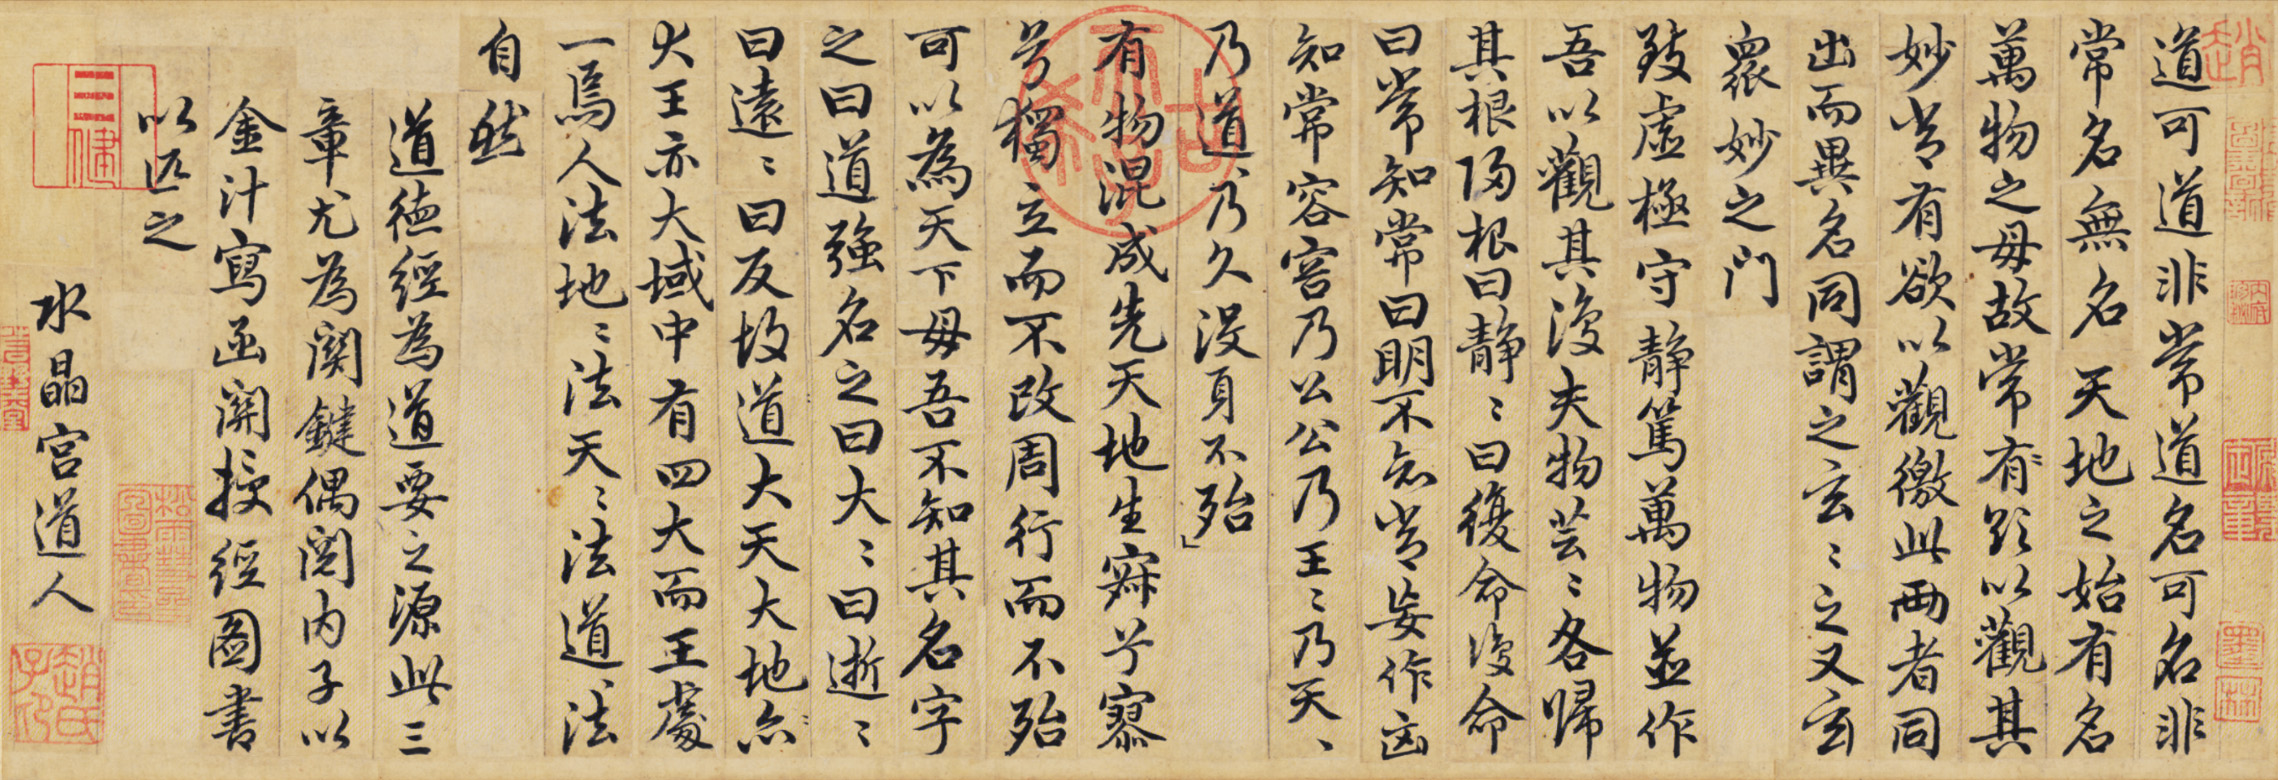 道可道非常道名可名非
常名無名天地之始有名
萬物之母故常有欲以觀其
妙常有欲以觀徼此两者同
出而異名同謂之玄〻之又玄
衆妙之門
致虚極守静篤萬物並作
吾以觀其復夫物芸〻各歸
其根歸根曰静〻曰復命復命
曰常知常曰明不知常妄作凶
知常容容乃公公乃王〻乃天〻
乃道〻乃久没身不殆
有物混成先天地生寂兮寥
兮獨立而不改周行而不殆
可以為天下母吾不知其名字
之曰道強名之曰大〻曰逝〻
曰遠〻曰反故道大天大地亦
大王亦大域中有四大而王處
一焉人法地〻法天〻法道〻法
自然
道德經為道要之源此三
章尤為関鍵偶閱内子以
金汁寫函関授經圖書
以匹之
水晶宫道人